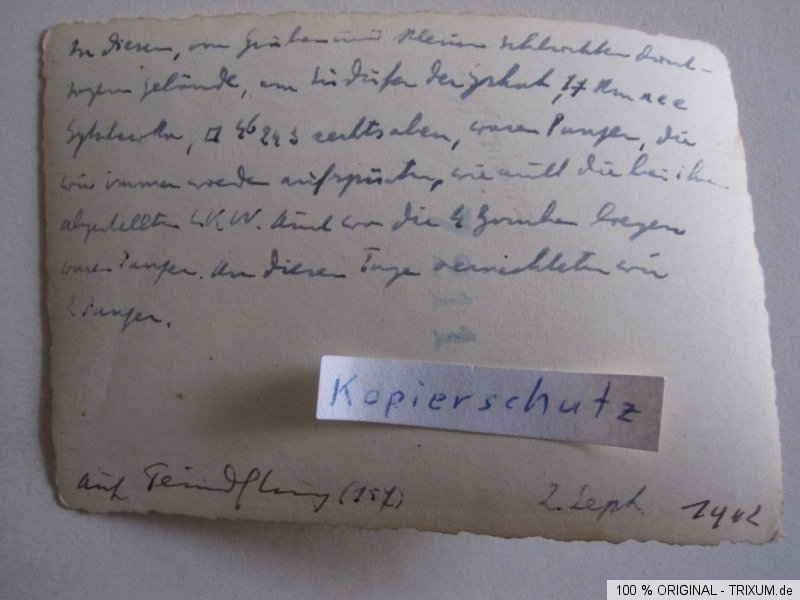 In diesem, von Gruben und kleinen Schluchten durch-
zogenen Gelände, am Südufer der 17 Km
243 rechts oben, waren Panzer, die
wir immer wieder aufspürten, wie auch die bei ihnen
abgestellten L.K.W. Auch wo die 4 Bomben liegen
waren Panzer. An diesem Tage vernichteten wir
2 Panzer.
11
Kopierschutz
auf Feindflug (157) 2. Sept. 1942
100 % ORIGINAL - TRIXUM.de